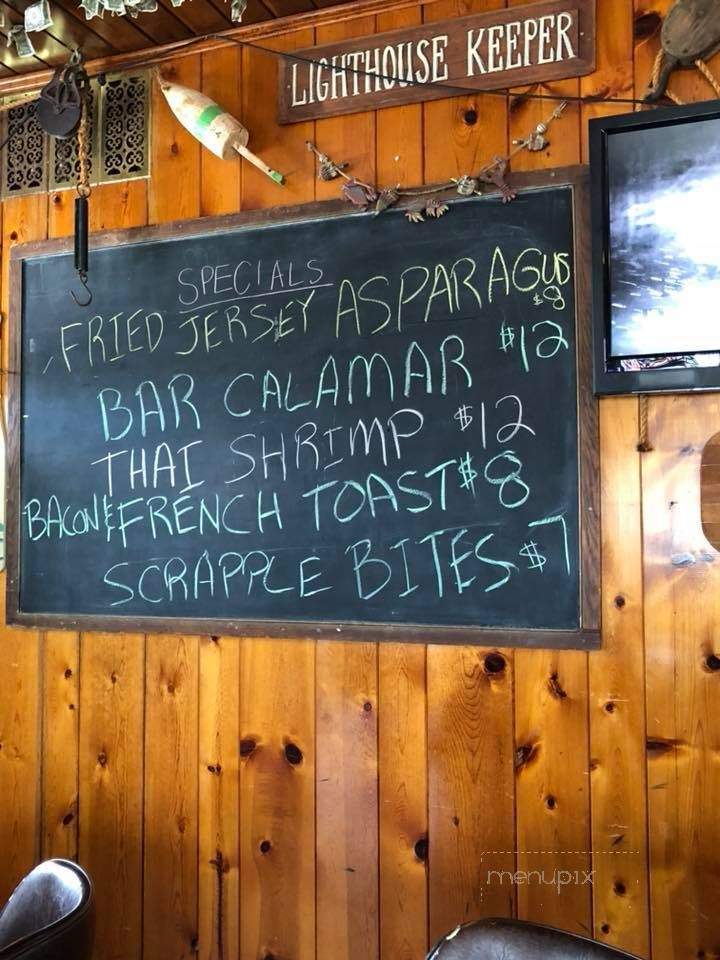 LIGHTHOUSE KEEPER
SPECIALS
FRIED JERSEY ASPARAGUS
$8
BAR CALAMAR $12
THAI SHRIMP $12
BACON & FRENCH TOAST $8
SCRAPPLE BITES $7
menupix